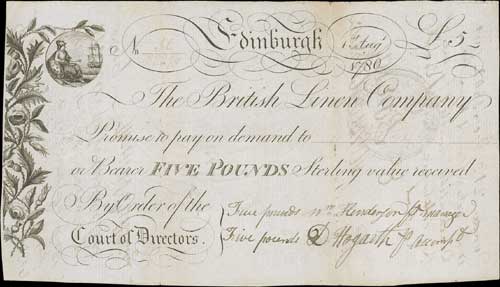 No Edinburgh 1st Augt £5
1780
The British Linen Company
Promise to pay on demand to
or Bearer FIVE POUNDS Sterling value received
By Order of the
Court of Directors.
Five pounds Wm Henderson
Five pounds D Hogarth